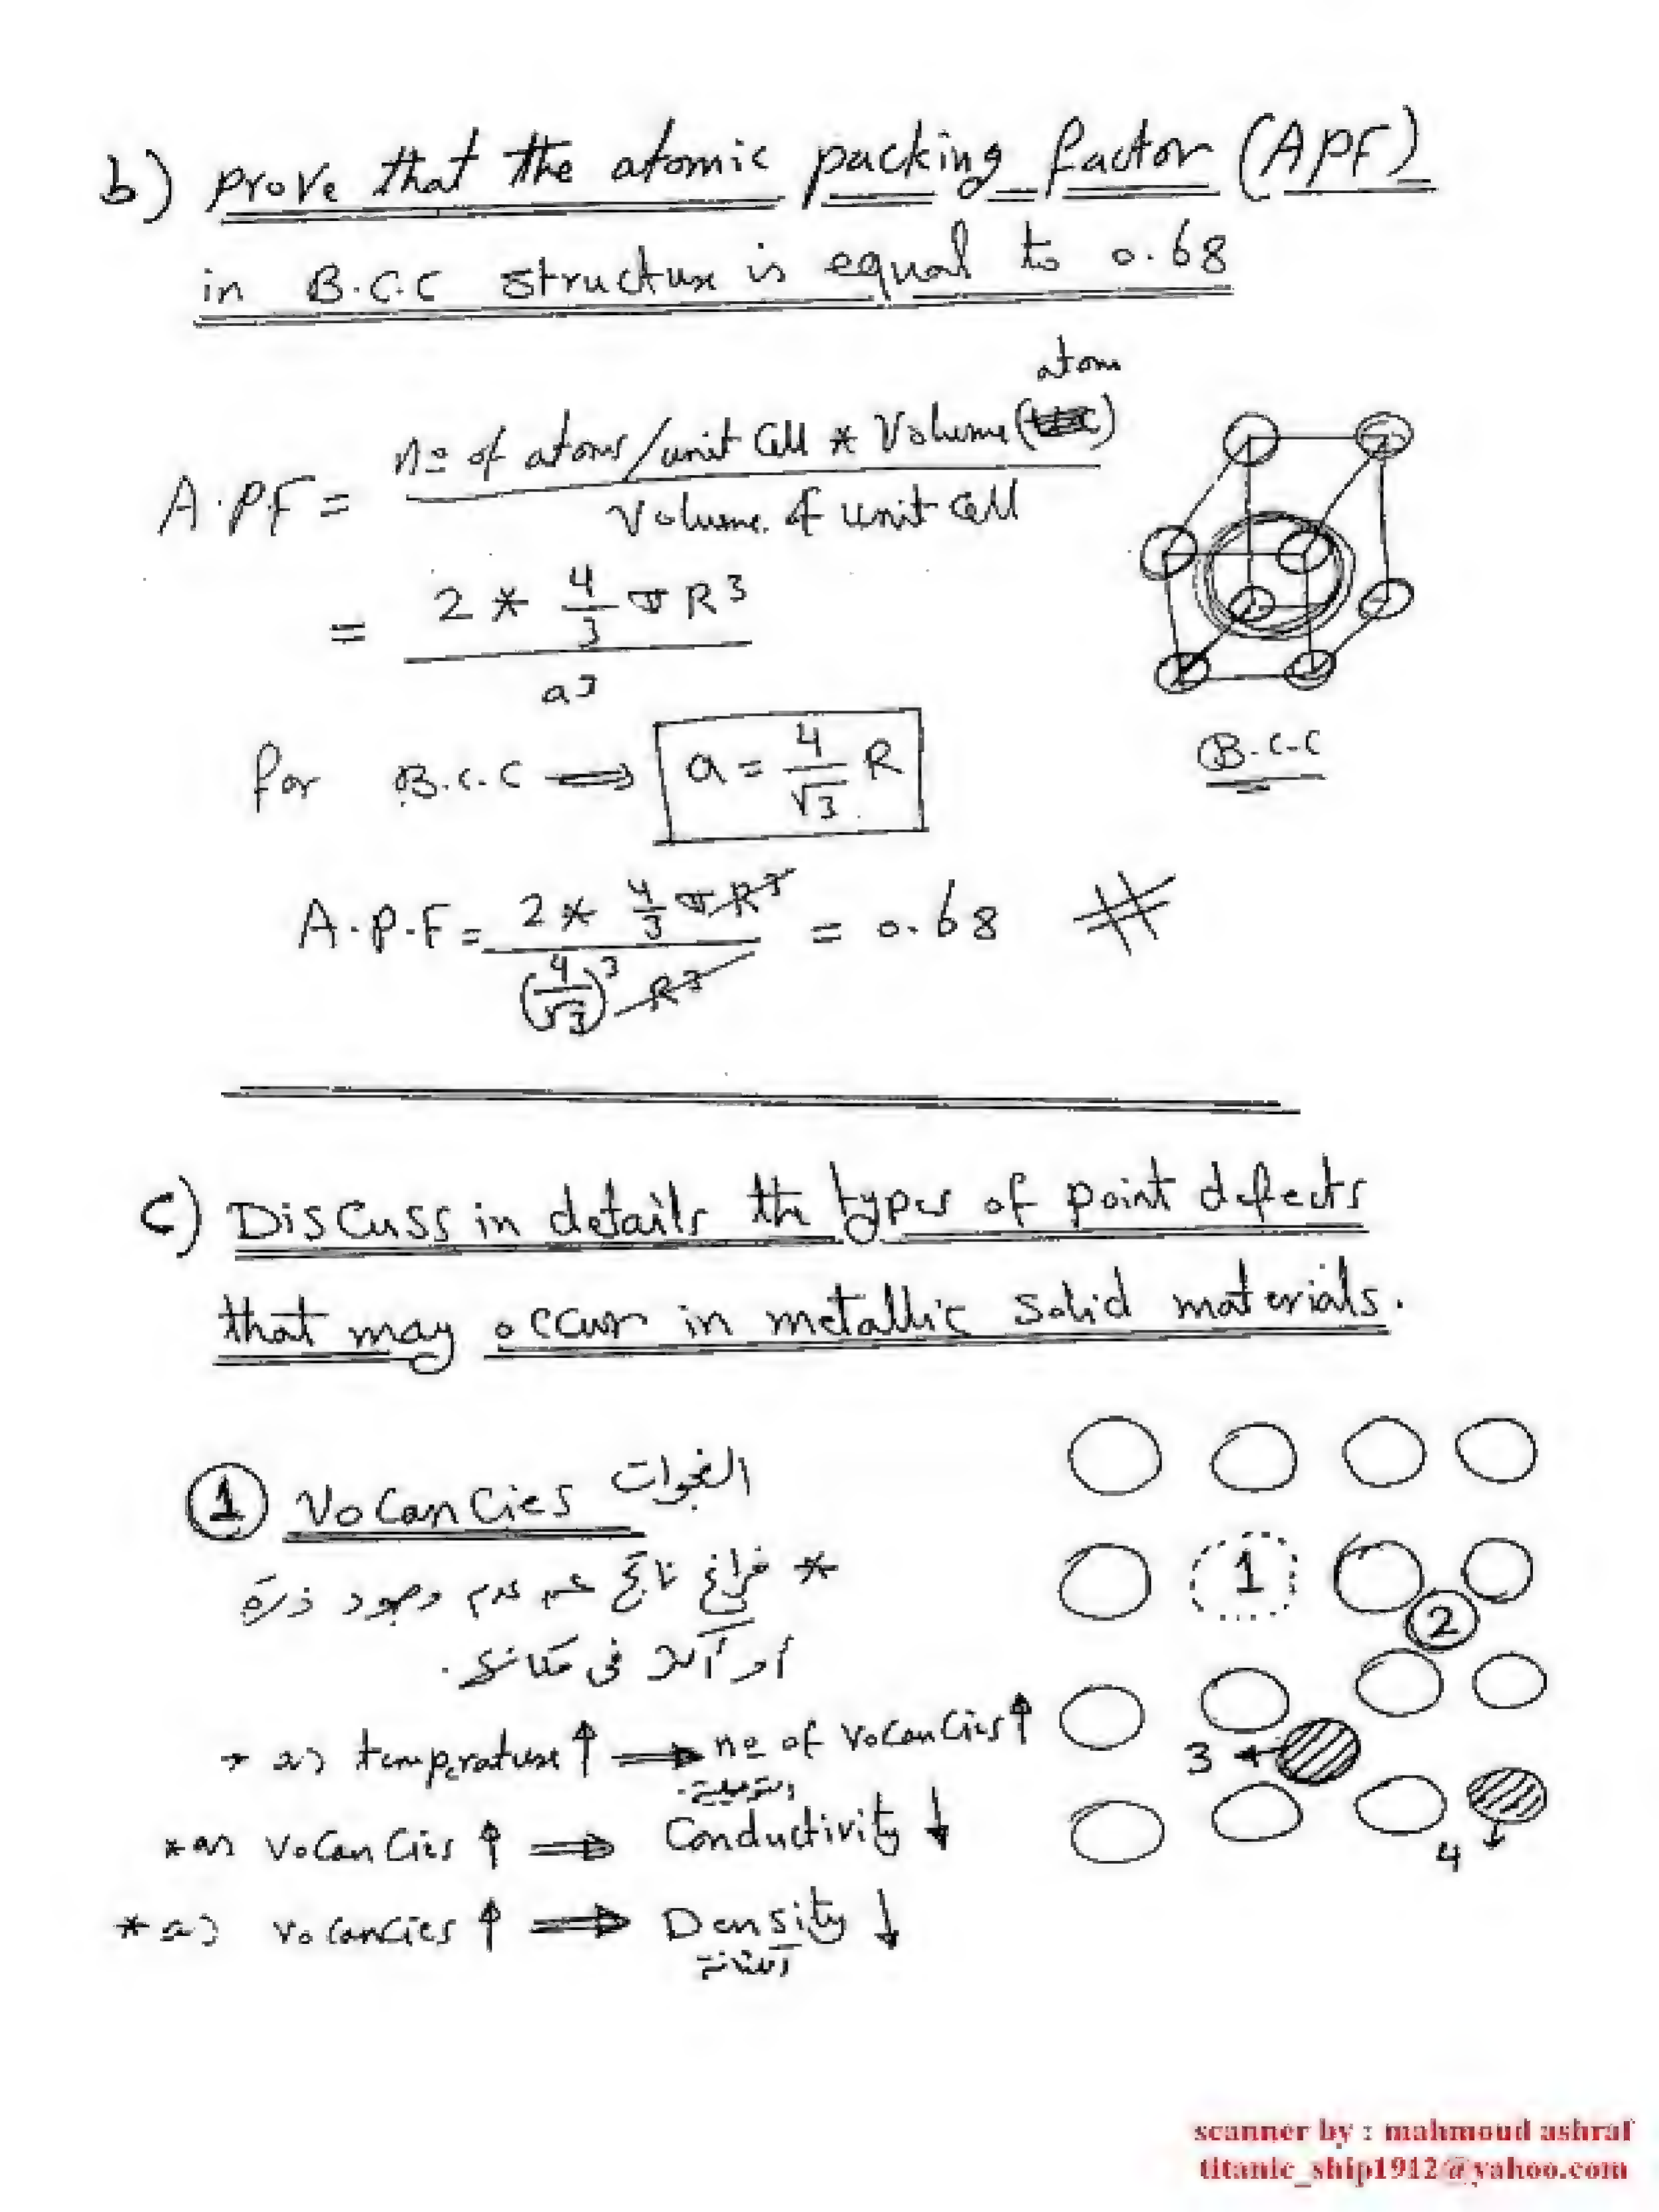 b) prove that the atomic packing factor (APF)
in B.C.C structure is equal to 0.68
A.P.F = nº of atoms/unit Cell * Volume (atom) / Volume of unit Cell
= 2 * 4/3 π R³ / a³
for B.C.C ⇒ a = 4/√3 R
B.C.C
A.P.F = 2 * 4/3 π R³ / (4/√3)³ R³ = 0.68 #
c) Discuss in details the types of point defects
that may occur in metallic solid materials.
① Vocancies الفجوات
* فراغ ناتج عن عدم وجود ذرة
أو أكثر فى مكانها.
* as temperature ↑ ⇒ nº of vocancies ↑
* as vocancies ↑ ⇒ Conductivity ↓
* as vocancies ↑ ⇒ Density ↓
الكثافة
1
2
3
4
scanner by : mahmoud ashraf
titanic_ship1912@yahoo.com